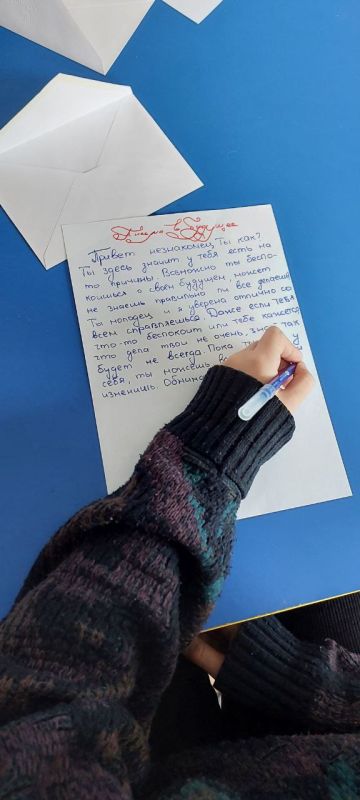 Письмо в Будущее
Привет незнакомец, Ты как?
Ты здесь значит у тебя есть на
то причины. Возможно ты беспо-
коишься о своём будущем, может
не знаешь правильно ли все делаешь
Ты молодец и я уверена отлично со
всем справляешься. Даже если тебя
что-то беспокоит или тебе кажется
что дела твои не очень, знай так
будет не всегда. Пока ты у
себя, ты можешь
изменишь. Обнимаю